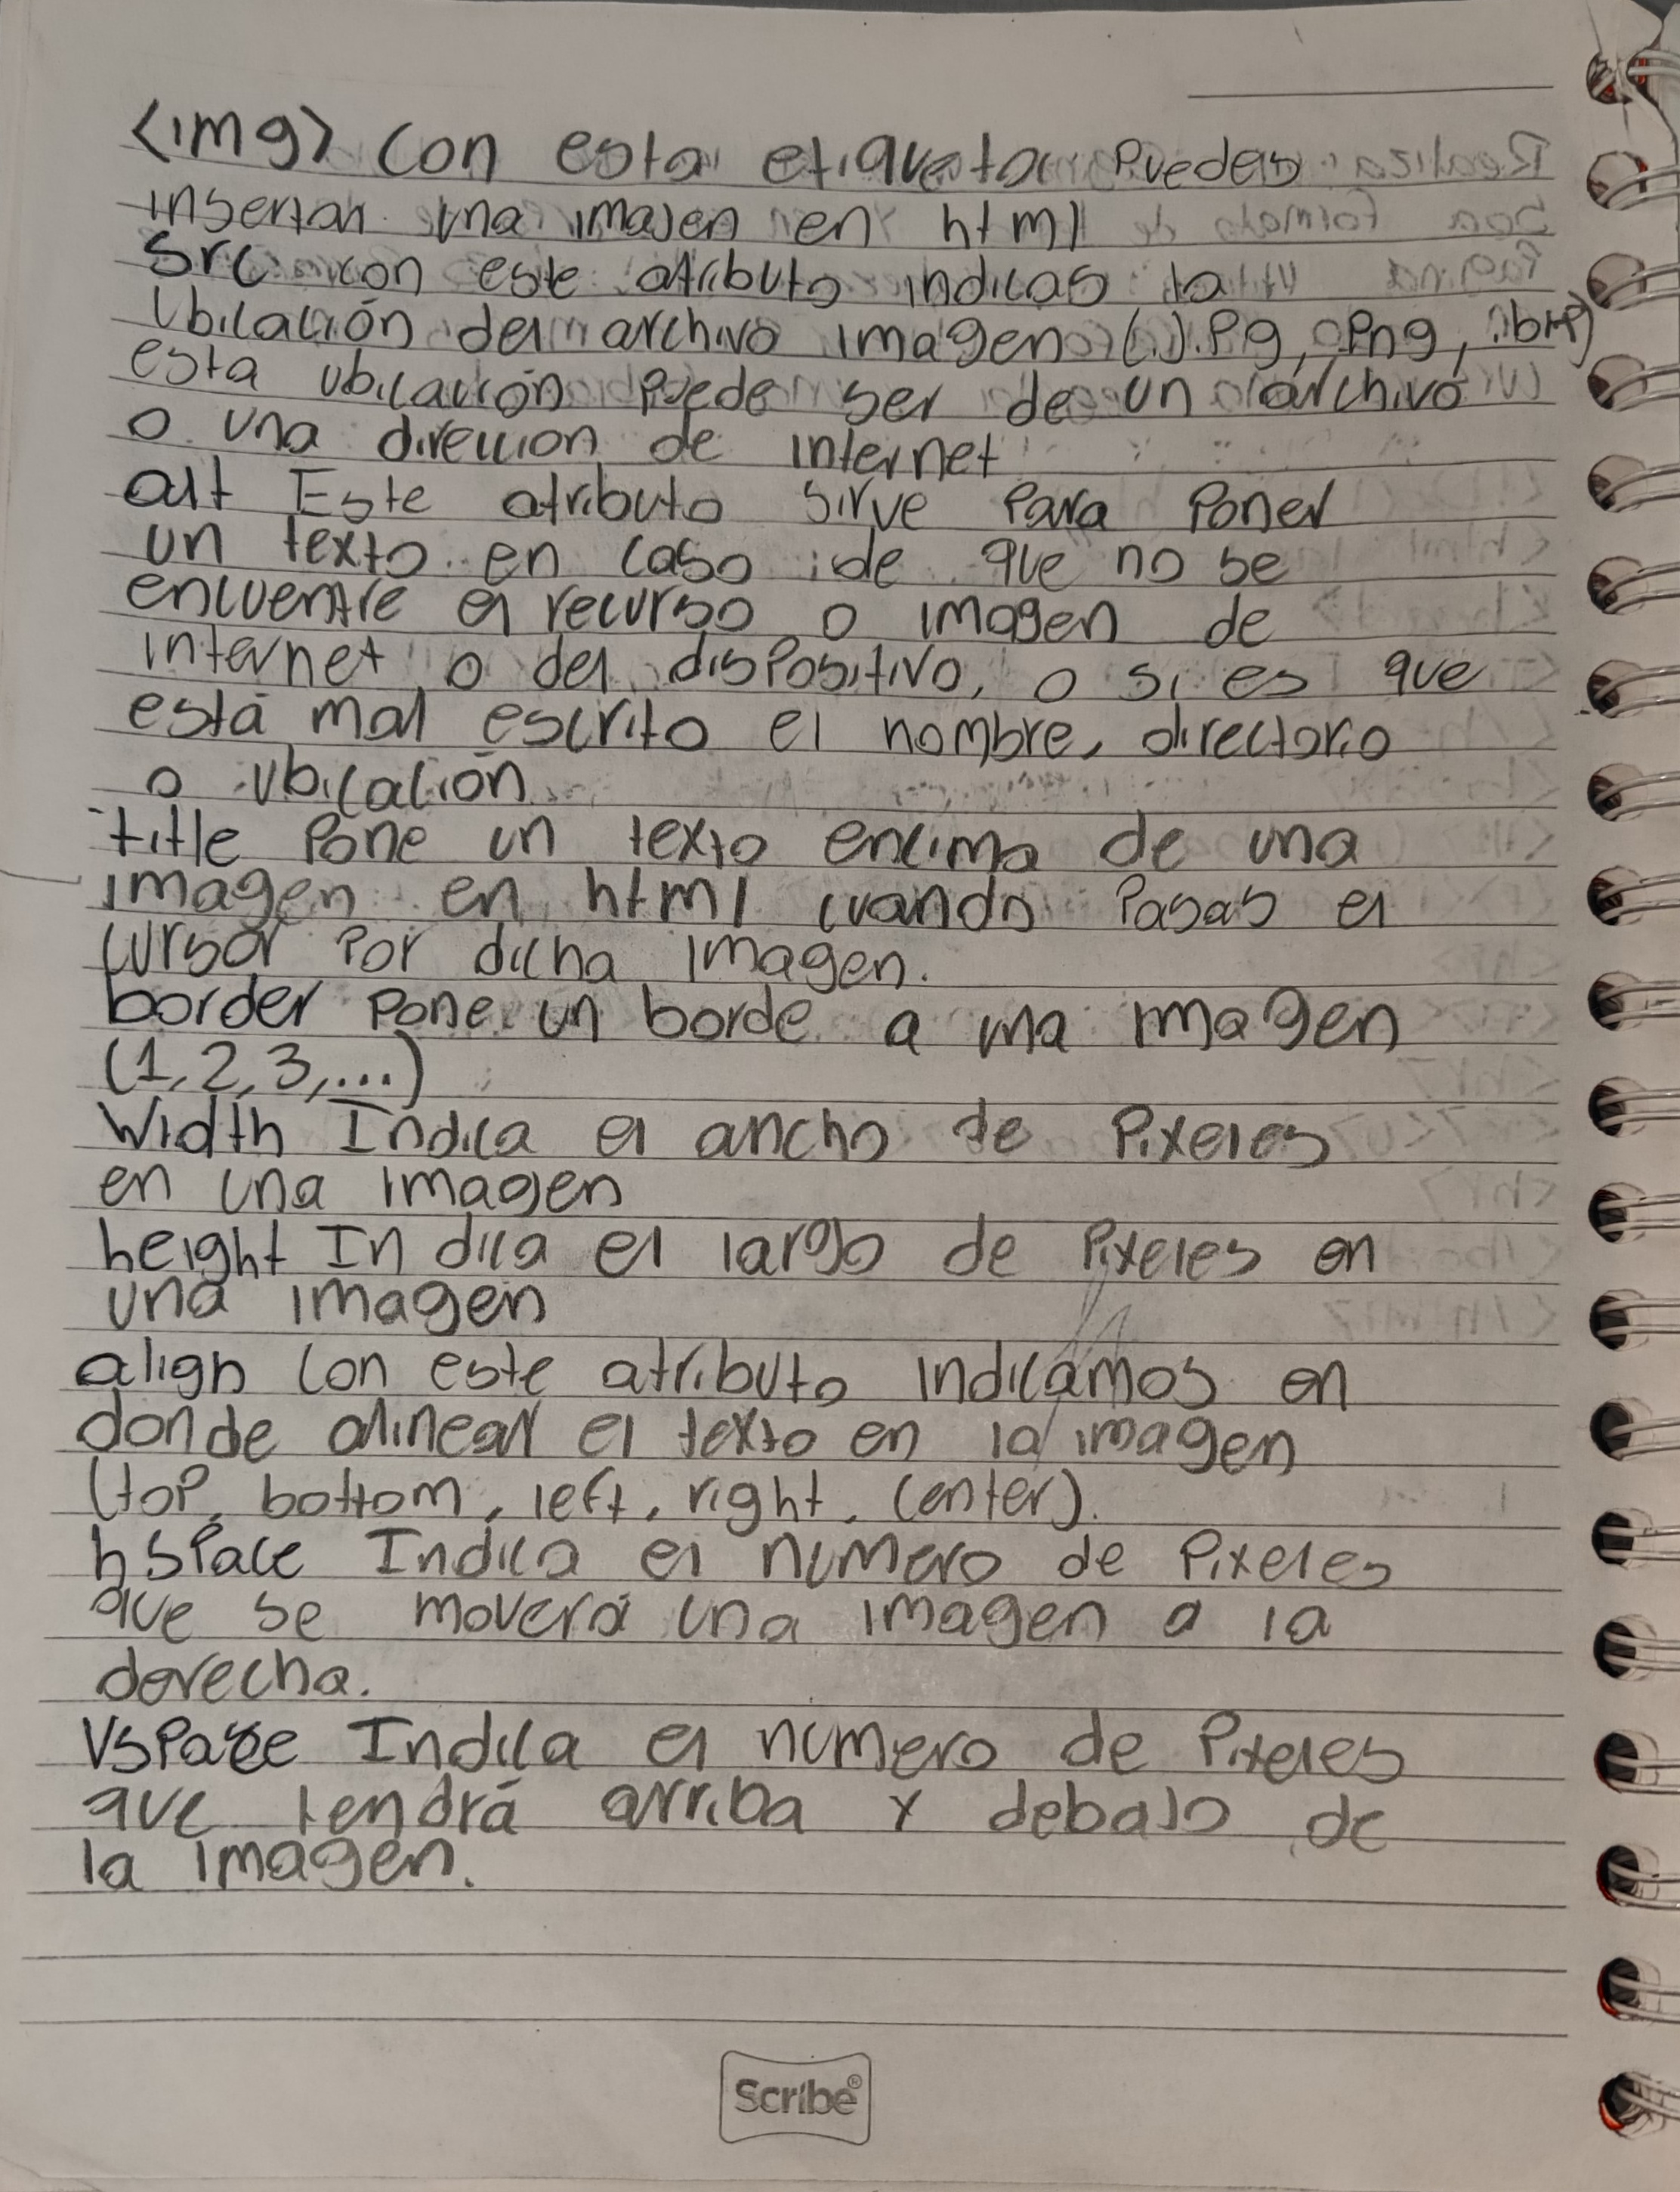 <img> con esta etiqueta puedes
insertar una imajen en html
src con este atributo indicas la
Ubicación del archivo imagen (.jpg, .png, .bmp)
esta ubicación puede ser de un archivo
o una direccion de internet
alt Este atributo sirve para poner
un texto en caso de que no se
encuentre el recurso o imagen de
internet o del dispositivo, o si es que
está mal escrito el nombre, directorio
o ubicación
title Pone un texto encima de una
imagen en html cuando pasas el
cursor por dicha imagen.
border pone un borde a una imagen
(1, 2, 3, ...)
Width Indica el ancho de pixeles
en una imagen
height Indica el largo de pixeles en
una imagen
align con este atributo indicamos en
donde alinear el texto en la imagen
(top, bottom, left, right, center).
hspace Indica el numero de pixeles
que se moverá una imagen a la
derecha.
Vspace Indica el numero de pixeles
que tendrá arriba y debajo de
la imagen.
Scribe®